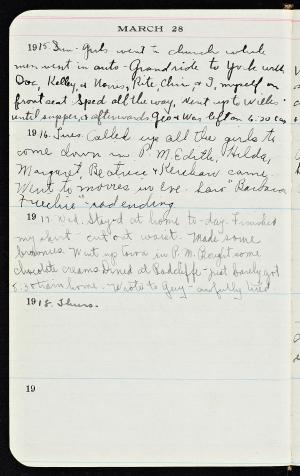 MARCH 28
1915. Sun. Girls went to church while
men went in auto - Grand ride to York with
Doc, Kelley, & Norris, Rite, Chin, & I, myself on
front seat Sped all the way, Went up to Wells'
until supper, & afterwards Geo & Way left on 6.20 car
1916. Tues. Called up all the girls to
come down in P.M. Edith, Hilda,
Margaret, Beatrice & Kerchaw came.
Went to movies in Eve. Saw "Barbara
Frietchie" - sad ending
1917. Wed. Stayed at home to-day. Finished
my skirt - cut out waist. Made some
brownies. Went up town in P.M. Bought some
chocolate creams Dined at Radcliffe - just barely got
5.30 train home. Wrote to Guy - awfully tired
1918. Thurs.
19